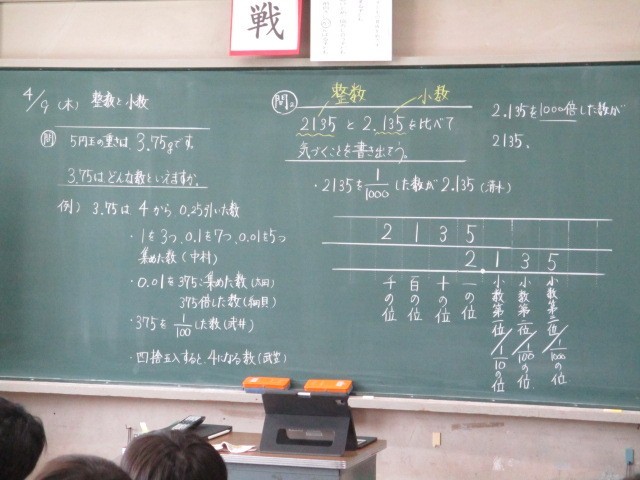 戦
4/9(木) 整数と小数
問 5円玉の重さは、3.75gです。
3.75は、どんな数といえますか。
例) 3.75は 4から、0.25引いた数
・1を3つ、0.1を7つ、0.01を5つ
集めた数(中村)
・0.01を375こ集めた数
375倍した数
・375を1/100した数(武井)
・四捨五入すると、4になる数
問。
整数 小数
2135 と 2.135を比べて
気づくことを書き出そう。
・2135を1/1000した数が 2.135(清水)
2.135を1000倍した数が
2135。
2 1 3 5
2.1 3 5
千の位
百の位
十の位
一の位
小数第一位/1/10の位
小数第二位/1/100の位
小数第三位/1/1000の位